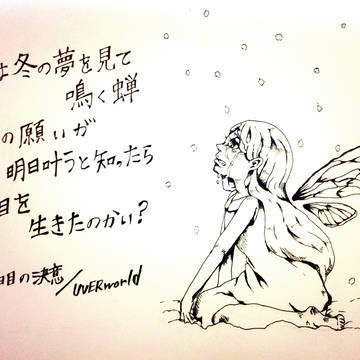 は冬の夢を見て
鳴く蝉
の願いが
明日叶うと知ったら
目を
生きたのかい?
日の決恋/UVERworld